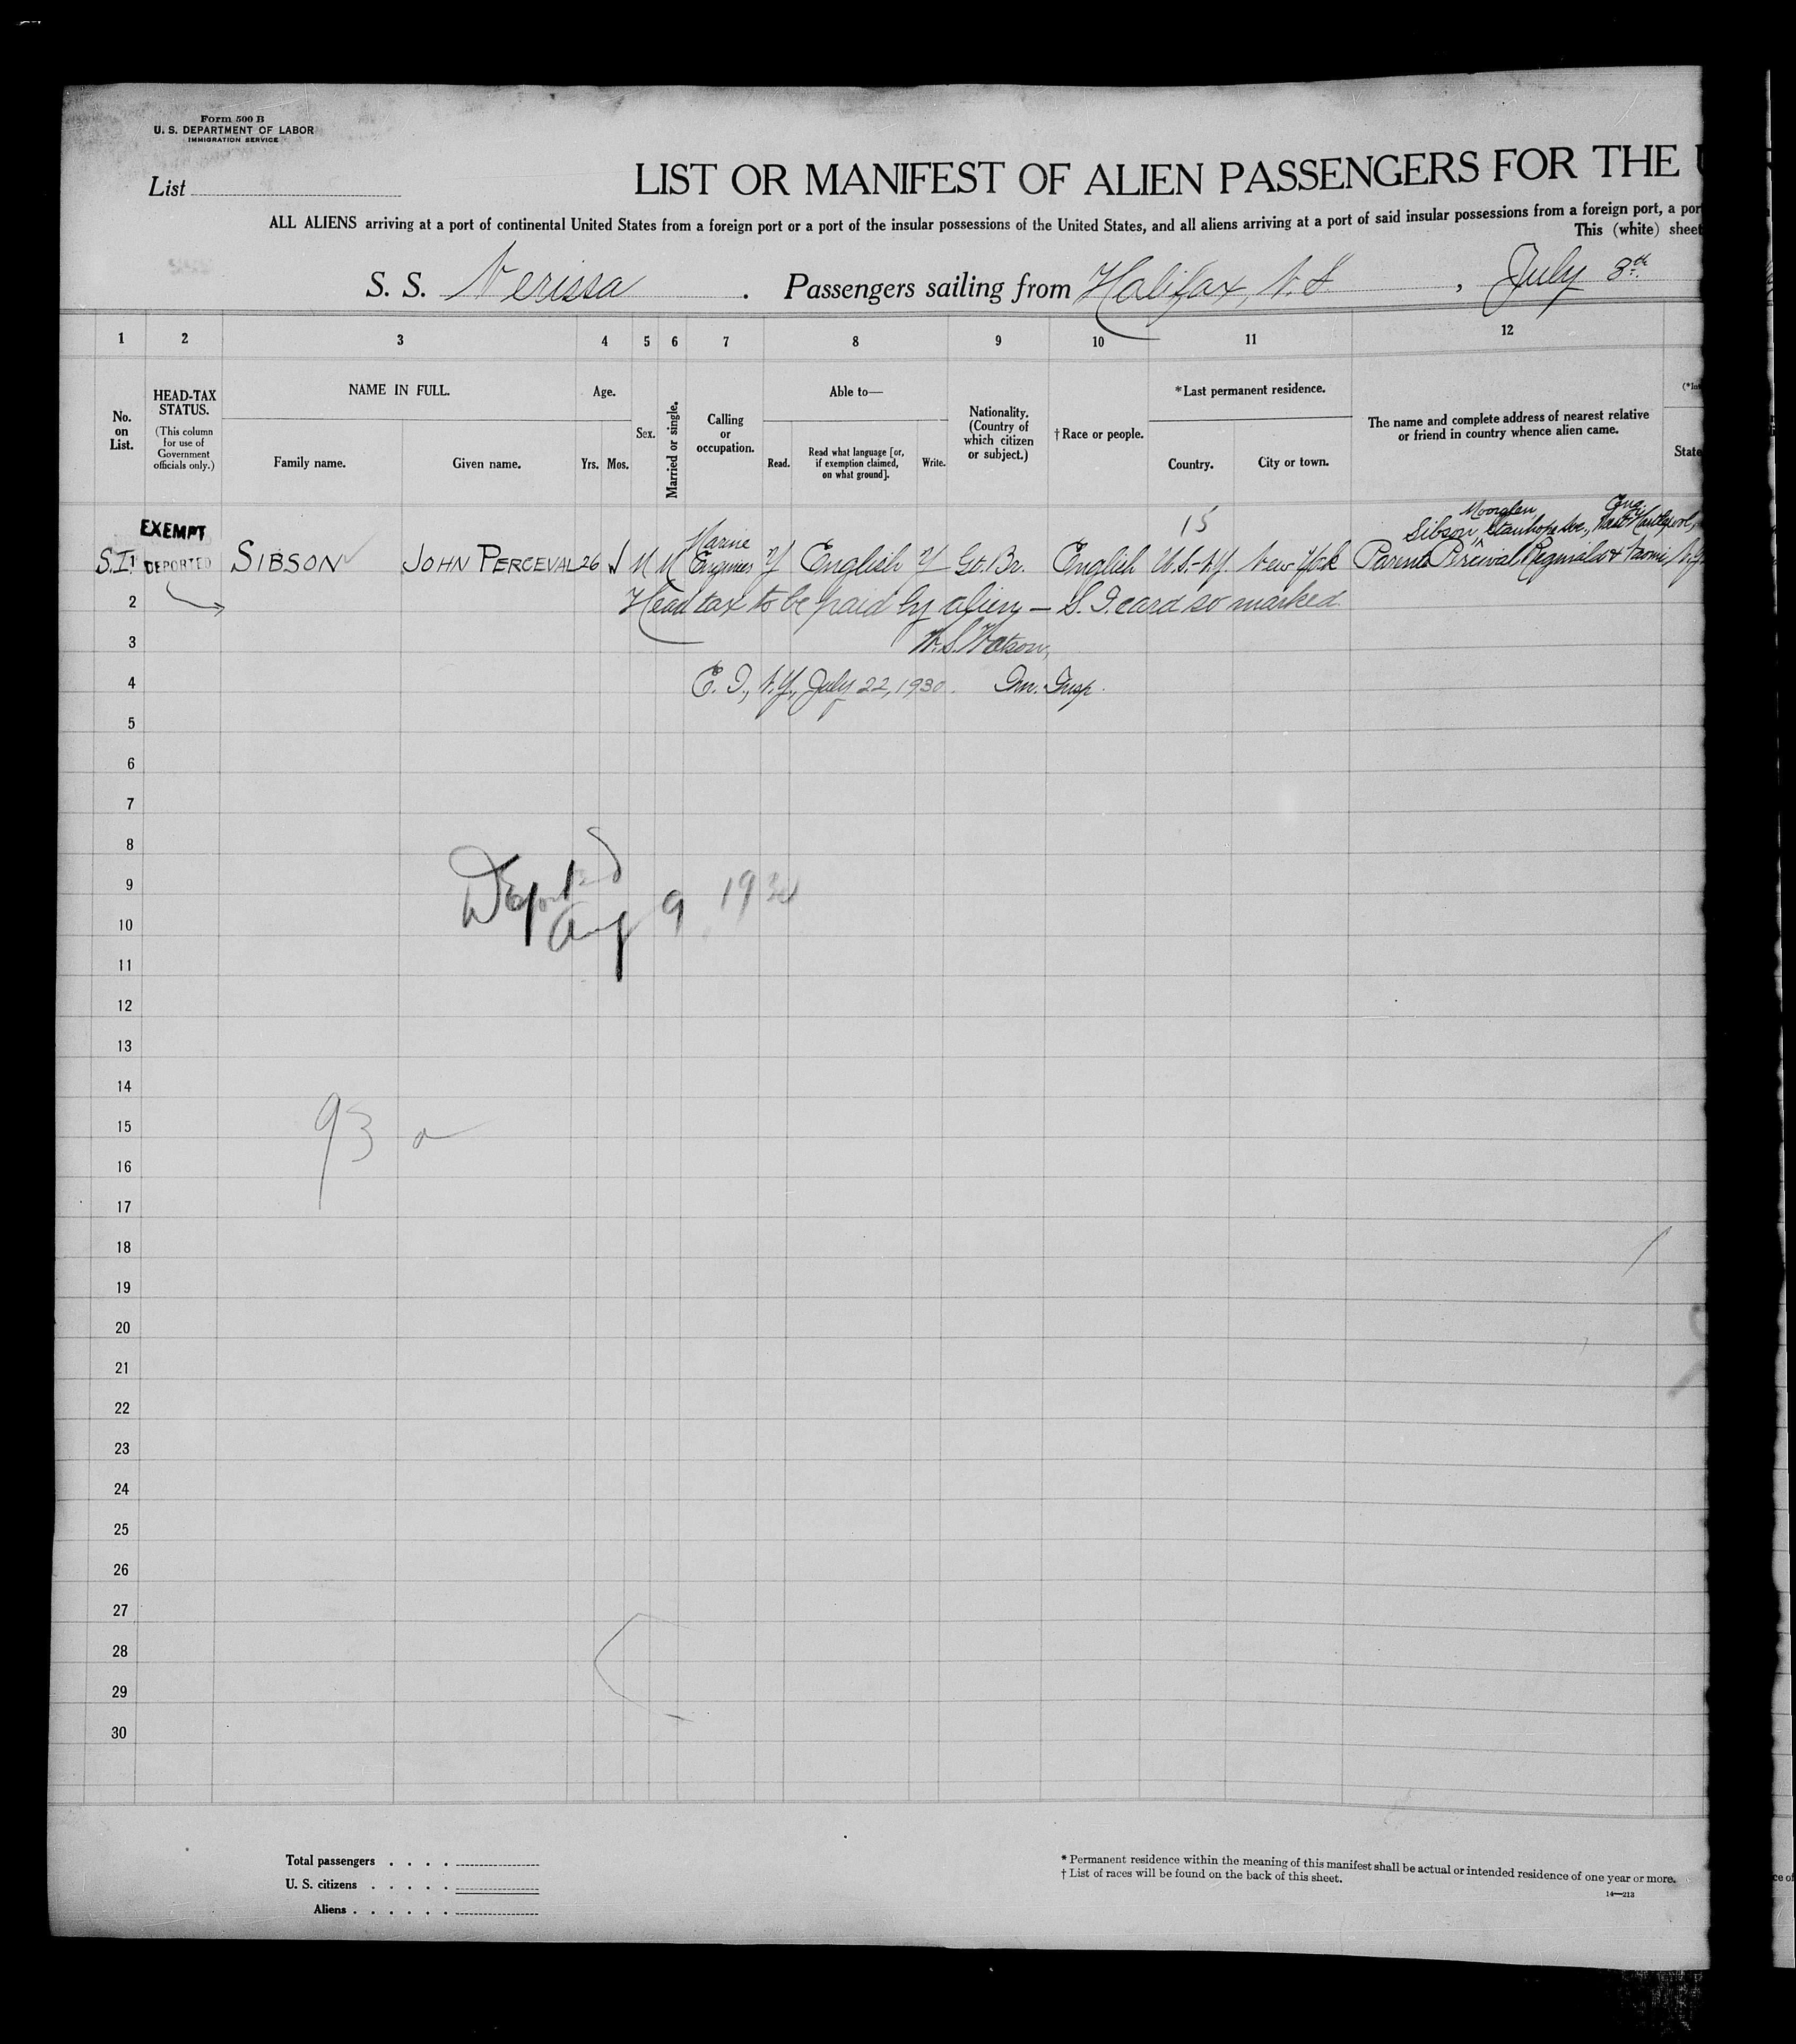 Form 500 B
U. S. DEPARTMENT OF LABOR
IMMIGRATION SERVICE
List
LIST OR MANIFEST OF ALIEN PASSENGERS FOR THE
ALL ALIENS arriving at a port of continental United States from a foreign port or a port of the insular possessions of the United States, and all aliens arriving at a port of said insular possessions from a foreign port, a por
This (white) sheet
S. S. Nerissa . Passengers sailing from Halifax, N. S , July 8th
1 2 3 4 5 6 7 8 9 10 11 12
No. on List.
HEAD-TAX STATUS.
(This column for use of Government officials only.)
NAME IN FULL.
Family name.
Given name.
Age.
Yrs. Mos.
Sex.
Married or single.
Calling or occupation.
Able to—
Read.
Read what language [or, if exemption claimed, on what ground].
Write.
Nationality. (Country of which citizen or subject.)
†Race or people.
*Last permanent residence.
Country.
City or town.
The name and complete address of nearest relative or friend in country whence alien came.
State
EXEMPT
15
Moorglen, Eng.
Sibson, Stanhope Ave., West Hartlepool,
S.I. 1 DEPORTED SIBSON JOHN PERCEVAL 26 M M Marine Engineer Y English Y Gt. Br. English U.S.-N.Y. New York Parents Percival Reginald &
2 Head tax to be paid by alien — S. I. card so marked
3 W. S. Watson,
4 E. I., N.Y., July 22, 1930. Im. Insp.
5
6
7
8
9 Deported
10 Aug 9 1930
11
12
13
14
15 93
16
17
18
19
20
21
22
23
24
25
26
27
28
29
30
Total passengers . . . .
U. S. citizens . . . . .
Aliens . . . . . .
* Permanent residence within the meaning of this manifest shall be actual or intended residence of one year or more.
† List of races will be found on the back of this sheet.
14—213